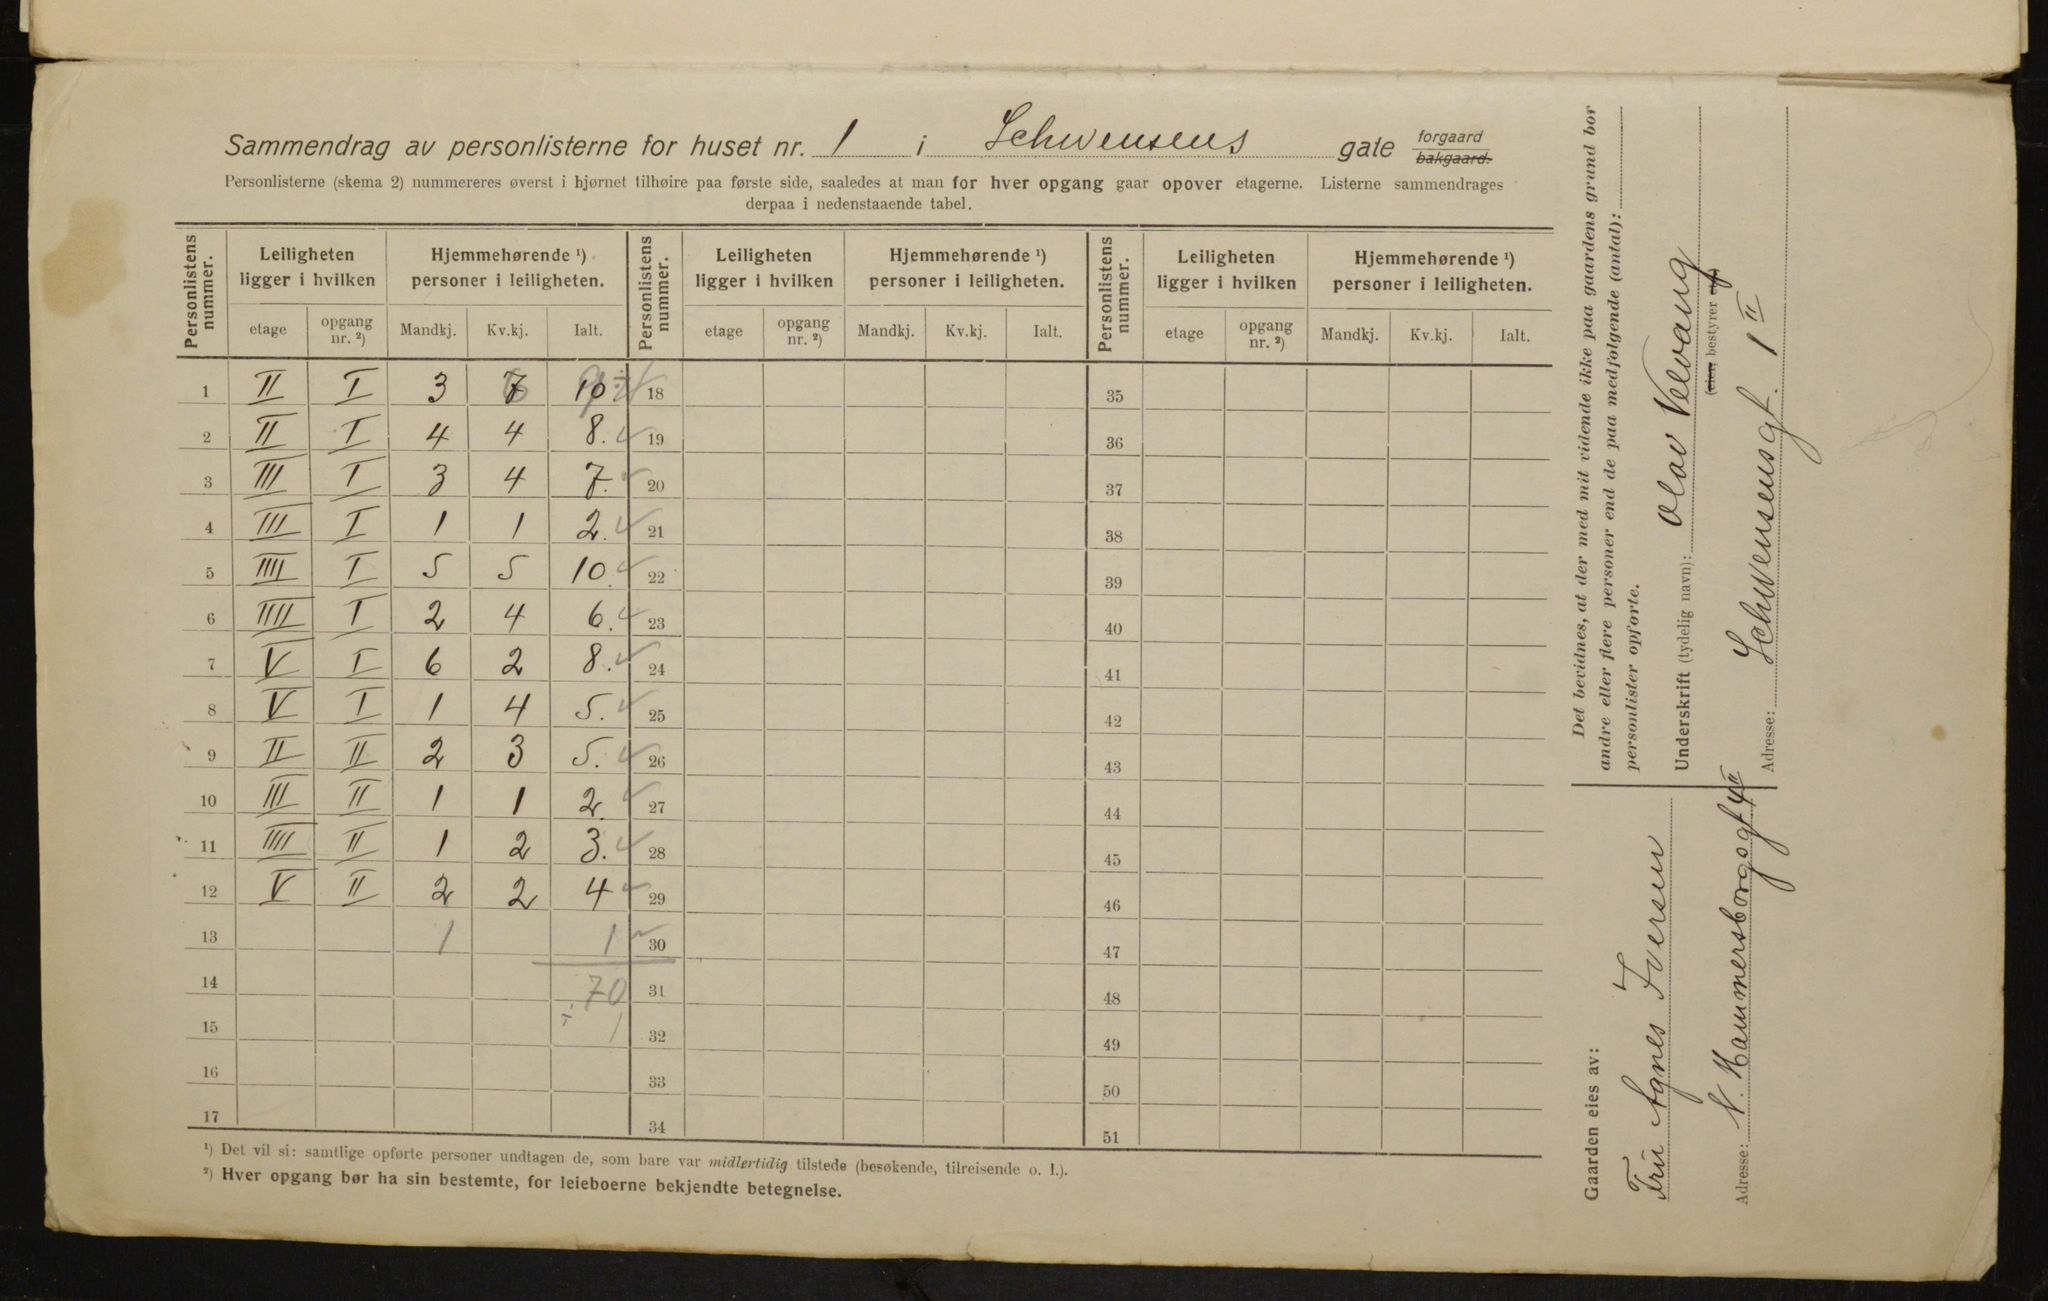 Sammendrag av personlisterne for huset nr. 1 i Schwensens gate forgaard bakgaard.
Personlisterne (skema 2) nummereres øverst i hjørnet tilhøire paa første side, saaledes at man for hver opgang gaar opover etagerne. Listerne sammendrages
derpaa i nedenstaaende tabel.
Personlistens nummer. Leiligheten ligger i hvilken Hjemmehørende ¹) personer i leiligheten. Personlistens nummer. Leiligheten ligger i hvilken Hjemmehørende ¹) personer i leiligheten. Personlistens nummer. Leiligheten ligger i hvilken Hjemmehørende ¹) personer i leiligheten.
etage opgang nr. ²) Mandkj. Kv.kj. Ialt. etage opgang nr. ²) Mandkj. Kv.kj. Ialt. etage opgang nr. ²) Mandkj. Kv.kj. Ialt.
1 II I 3 7 10 18 35
2 II I 4 4 8. 19 36
3 III I 3 4 7. 20 37
4 III I 1 1 2. 21 38
5 IIII I 5 5 10. 22 39
6 IIII I 2 4 6. 23 40
7 V I 6 2 8. 24 41
8 V I 1 4 5. 25 42
9 II II 2 3 5. 26 43
10 III II 1 1 2. 27 44
11 IIII II 1 2 3. 28 45
12 V II 2 2 4 29 46
13 1 1 30 47
14 70 31 48
15 1 32 49
16 33 50
17 34 51
¹) Det vil si: samtlige opførte personer undtagen de, som bare var midlertidig tilstede (besøkende, tilreisende o. l.).
²) Hver opgang bør ha sin bestemte, for leieboerne bekjendte betegnelse.
Det bevidnes, at der med mit vidende ikke paa gaardens grund bor
andre eller flere personer end de paa medfølgende (antal):
personlister opførte.
Underskrift (tydelig navn): Olav Velvang
(eier, bestyrer etc.)
Adresse: Schwensensgt. 1 II
Gaarden eies av:
Fru Agnes Iversen
Adresse: N. Hammersborgsgt 4 II